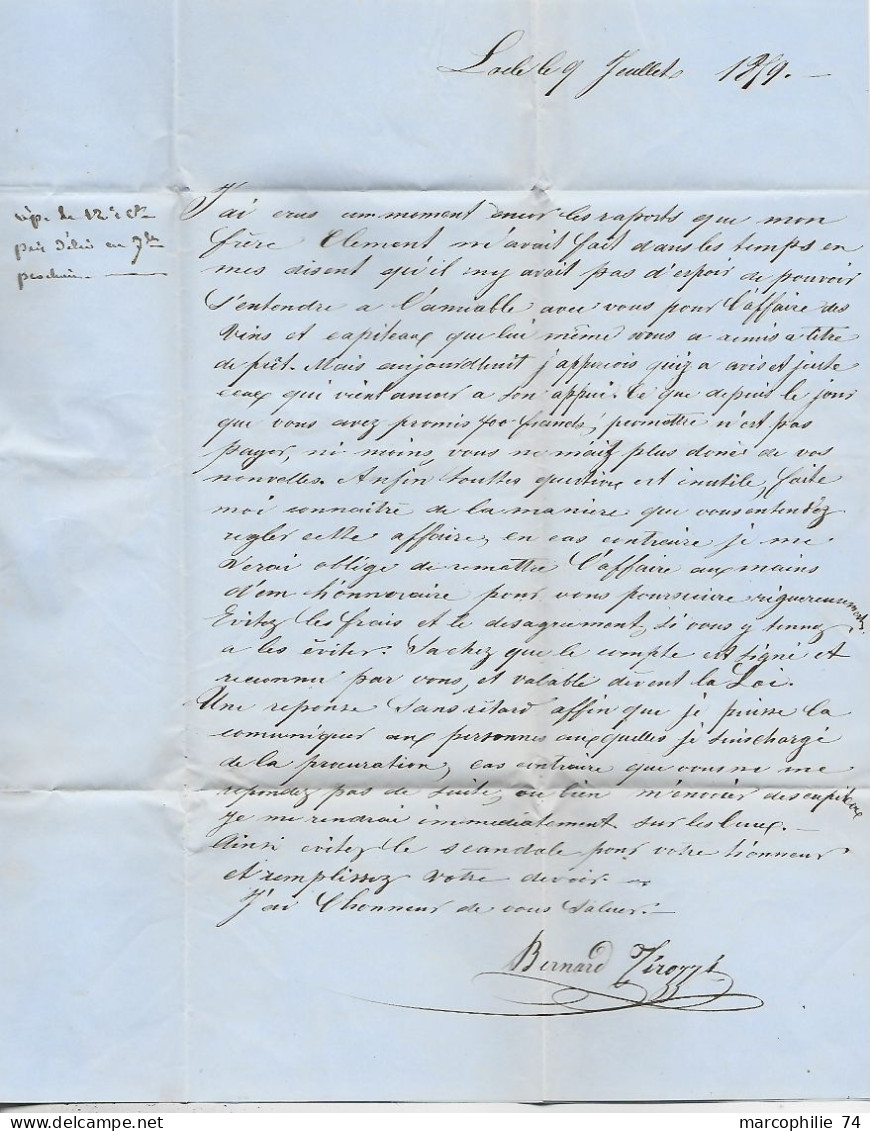 Locle le 9 Juillet 1859. –
rép. le 12 ct
pris délai en 7bre
prochain. —
J'ai crus un moment encor les raports que mon
frère Clement m'avait fait dans les temps en
mes disent qu'il n'y avait pas d'espoir de pouvoir
s'entendre a l'amiable avec vous pour l'affaire des
Vins et capiteaux que lui même vous a remis a titre
de prêt. Mais aujourdhuit j'appercois quiz a avis et juste
ceux qui vient encor a son appui. Ce que depuis le jour
que vous avez promis 400 francs, promettre n'est pas
payer, ni moins vous ne m'aiz plus donné de vos
nouvelles. Anfin touttes question est inutile, faite
moi connaître de la maniere que vous entendez
regler cette affaire, en cas contraire je me
verai obligé de remettre l'affaire aux mains
d'om honnoraire pour vous poursuivre riguereusement.
Evitez les frais et le desagrement, si vous y tennez
a les éviter. Sachez que le compte est signé et
reconnu par vous, et valable devent la Loi.
Une reponse sans rétard affin que je puisse la
comuniquer aux personnes auxquelles je suis chargé
de la procuration, cas contraire que vous ne me
repondez pas de suite, ou bien m'envoier des capiteaux
je me rendrai immediatement sur les lieux. –
Ainsi evitez le scandale pour votre honneur
et remplissez votre devoir. –
J'ai l'honneur de vous saluer. –
Bernard Tirozzi
marcophilie 74